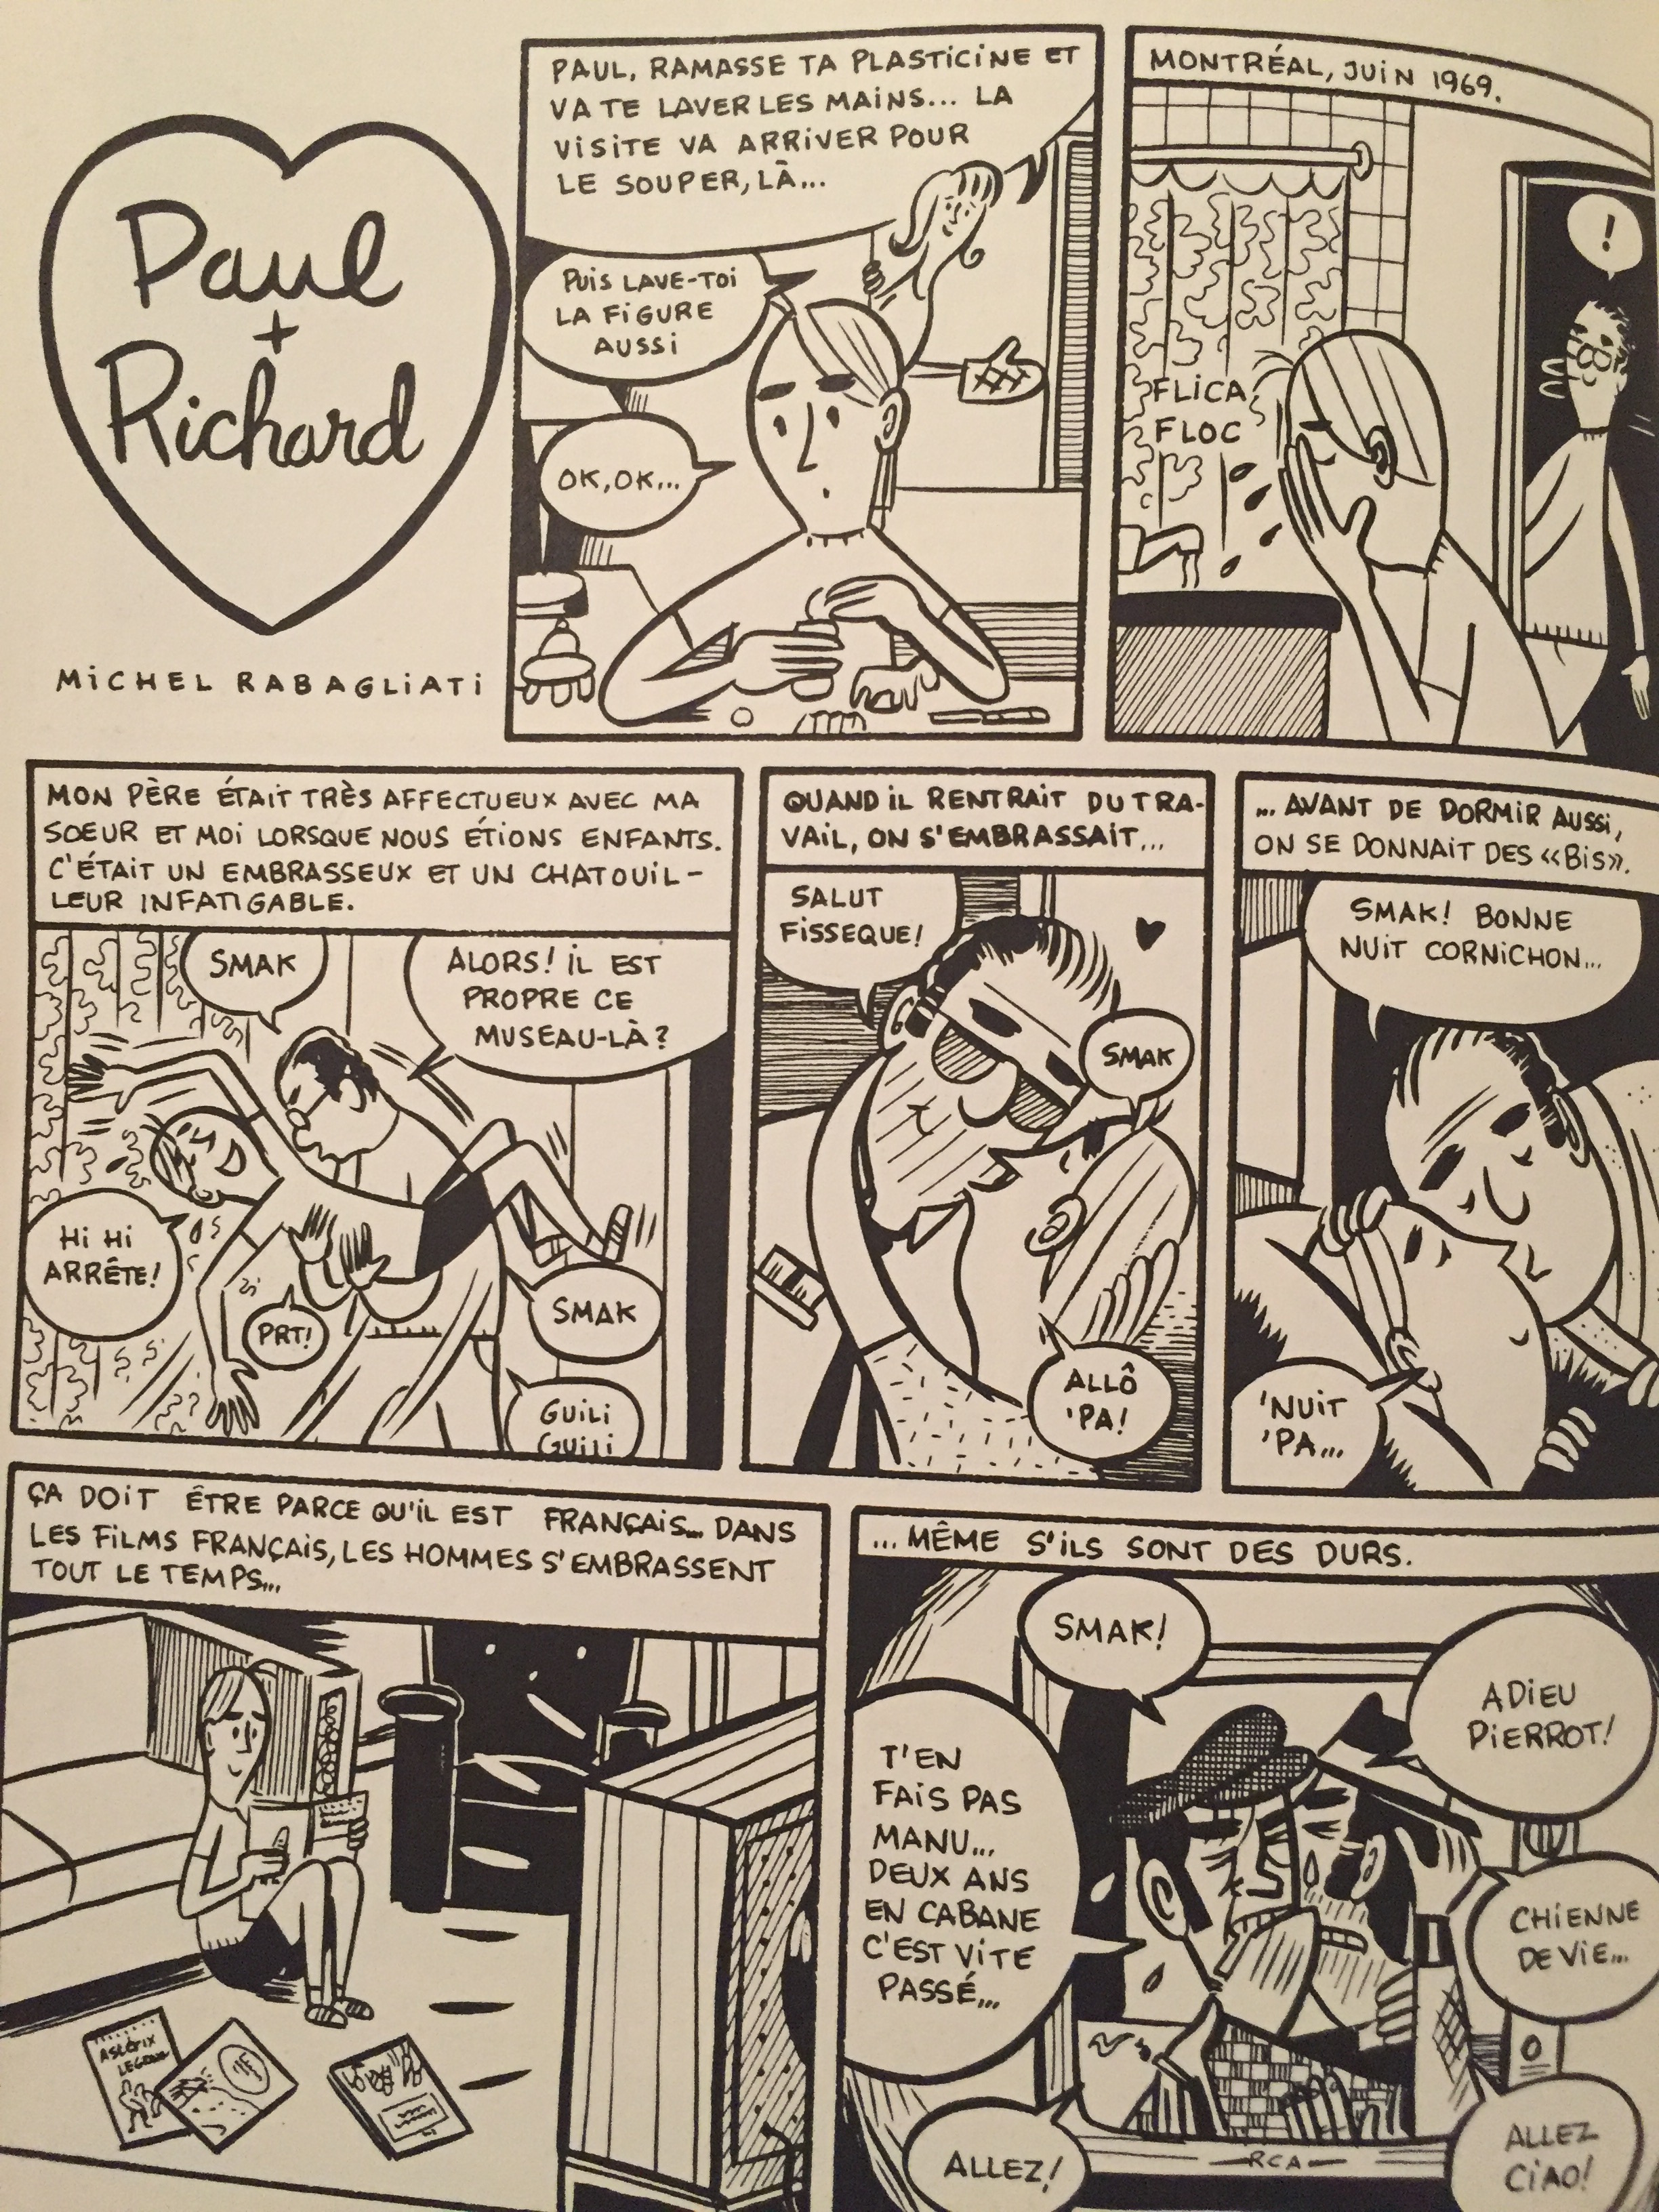 Paul
+
Richard
MICHEL RABAGLIATI
PAUL, RAMASSE TA PLASTICINE ET
VA TE LAVER LES MAINS... LA
VISITE VA ARRIVER POUR
LE SOUPER, LÀ...
PUIS LAVE-TOI
LA FIGURE
AUSSI
OK, OK...
MONTRÉAL, JUIN 1969.
!
FLICA
FLOC
MON PÈRE ÉTAIT TRÈS AFFECTUEUX AVEC MA
SOEUR ET MOI LORSQUE NOUS ÉTIONS ENFANTS.
C'ÉTAIT UN EMBRASSEUX ET UN CHATOUIL-
LEUR INFATIGABLE.
SMAK
ALORS! IL EST
PROPRE CE
MUSEAU-LÀ?
HI HI
ARRÊTE!
PRT!
SMAK
GUILI
GUILI
QUAND IL RENTRAIT DU TRA-
VAIL, ON S'EMBRASSAIT...
SALUT
FISSEQUE!
SMAK
ALLÔ
'PA!
... AVANT DE DORMIR AUSSI,
ON SE DONNAIT DES «BIS».
SMAK! BONNE
NUIT CORNICHON...
'NUIT
'PA...
ÇA DOIT ÊTRE PARCE QU'IL EST FRANÇAIS... DANS
LES FILMS FRANÇAIS, LES HOMMES S'EMBRASSENT
TOUT LE TEMPS...
ASTÉRIX
... MÊME S'ILS SONT DES DURS.
SMAK!
ADIEU
PIERROT!
T'EN
FAIS PAS
MANU...
DEUX ANS
EN CABANE
C'EST VITE
PASSÉ...
CHIENNE
DE VIE...
ALLEZ!
ALLEZ
CIAO!
RCA